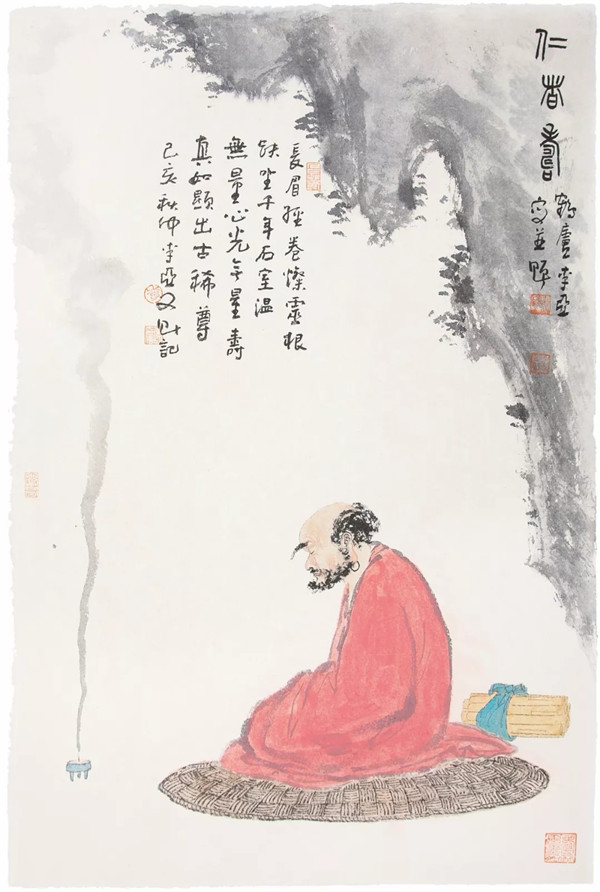 仁者壽
鶴廬李亞
寫並題
長眉經卷燦靈根
趺坐千年石室温
無量心光無量壽
真如顯出古稀尊
己亥秋仲李亞又題記